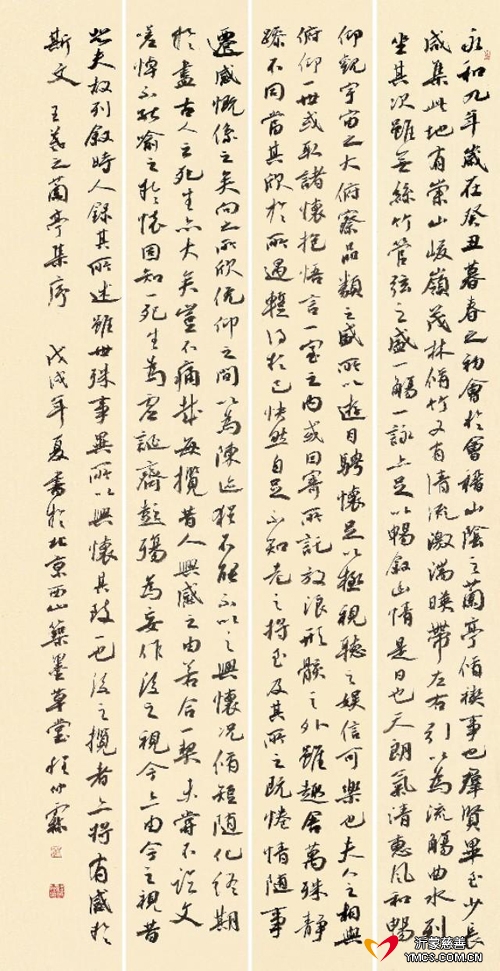 永和九年歲在癸丑暮春之初會於會稽山陰之蘭亭脩禊事也羣賢畢至少長
咸集此地有崇山峻嶺茂林脩竹又有清流激湍暎帶左右引以為流觴曲水列
坐其次雖無絲竹管弦之盛一觴一詠亦足以暢敘幽情是日也天朗氣清惠風和暢
仰觀宇宙之大俯察品類之盛所以遊目騁懷足以極視聽之娛信可樂也夫人之相與
俯仰一世或取諸懷抱悟言一室之內或因寄所託放浪形骸之外雖趣舍萬殊靜
躁不同當其欣於所遇蹔得於己快然自足不知老之將至及其所之既惓情隨事
遷感慨係之矣向之所欣俛仰之間以為陳迹猶不能不以之興懷況脩短隨化終期
於盡古人云死生亦大矣豈不痛哉每攬昔人興感之由若合一契未嘗不臨文
嗟悼不能喻之於懷固知一死生為虛誕齊彭殤為妄作後之視今亦由今之視昔
悲夫故列敘時人錄其所述雖世殊事異所以興懷其致一也後之攬者亦將有感於
斯文 王羲之蘭亭集序 戊戌年夏書於北京西山築墨草堂
沂蒙慈善
YMCS.COM.CN